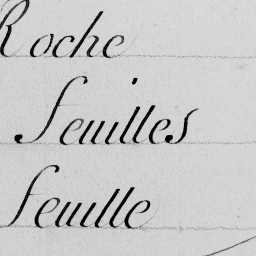 Roche
feuilles
feuille